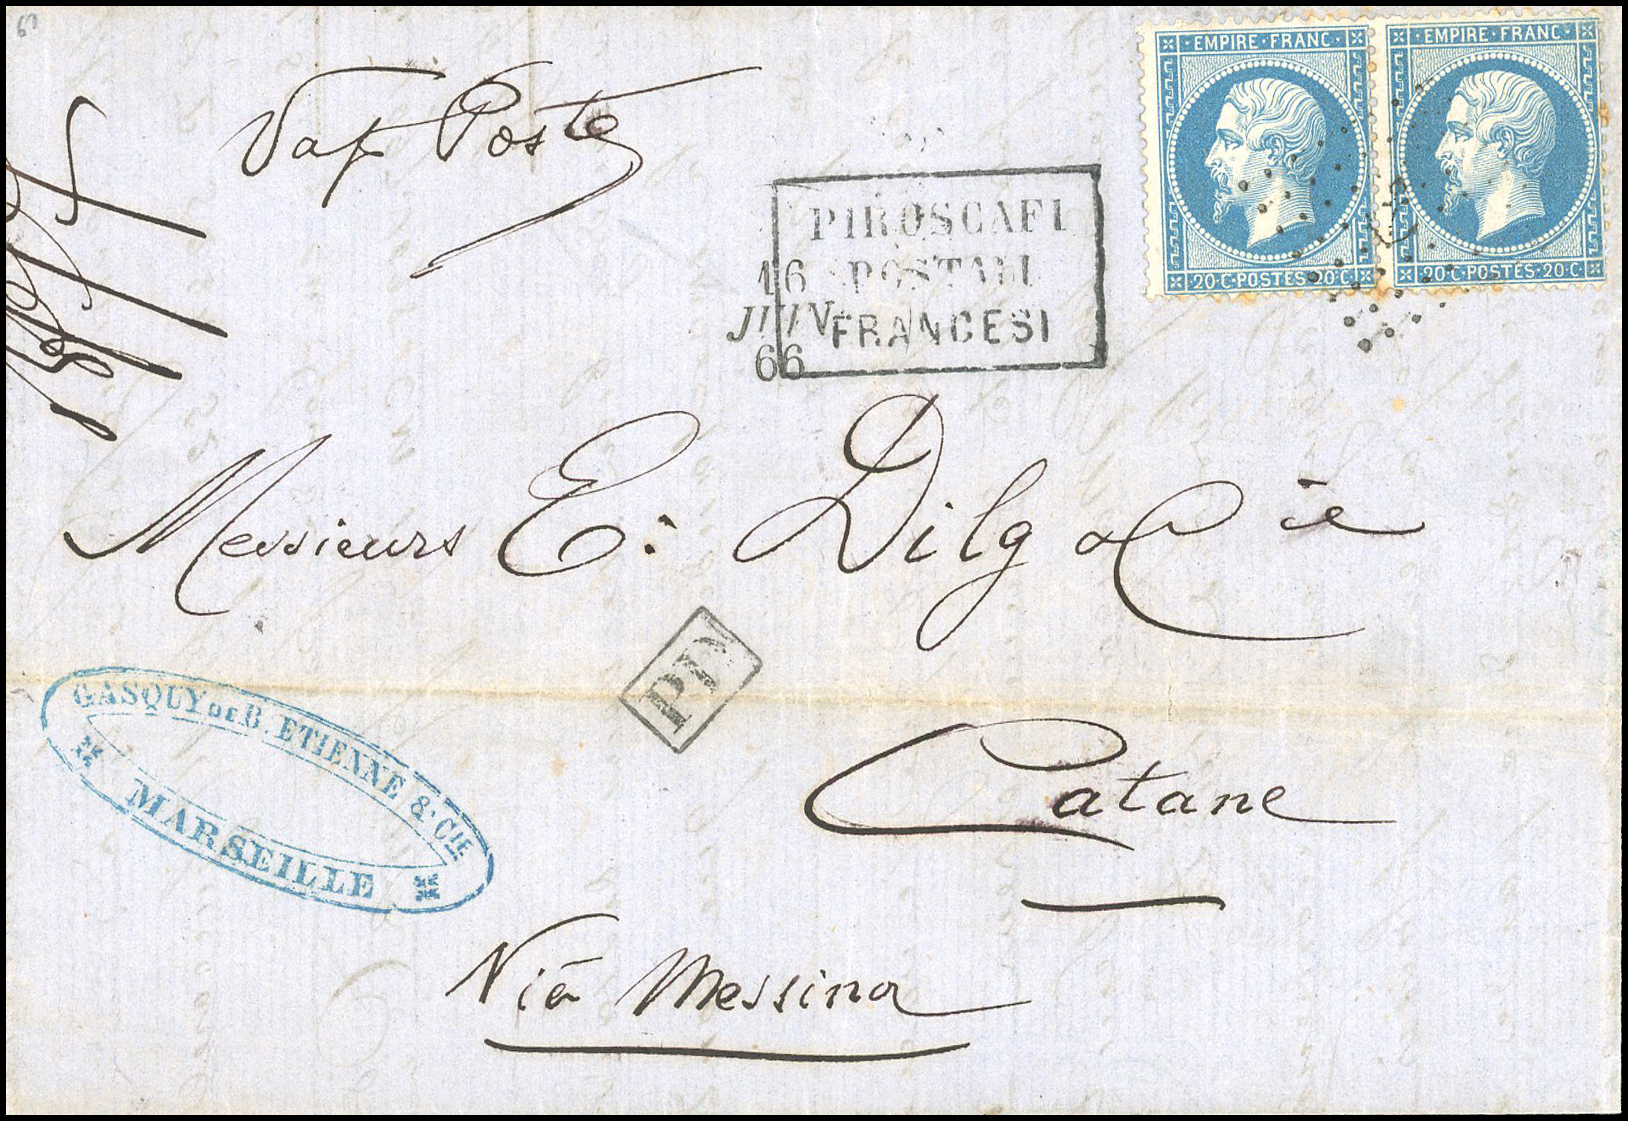 Vap Poste
EMPIRE · FRANC ·
20 · C · POSTES · 20 · C
EMPIRE · FRANC ·
20 · C · POSTES · 20 · C
PIROSCAFI
POSTALI
FRANCESI
16
JUIN
66
Messieurs E. Dilg & Cie
PD
GASQUY DE B. ETIENNE & CIE
MARSEILLE
Catane
Viā Messina